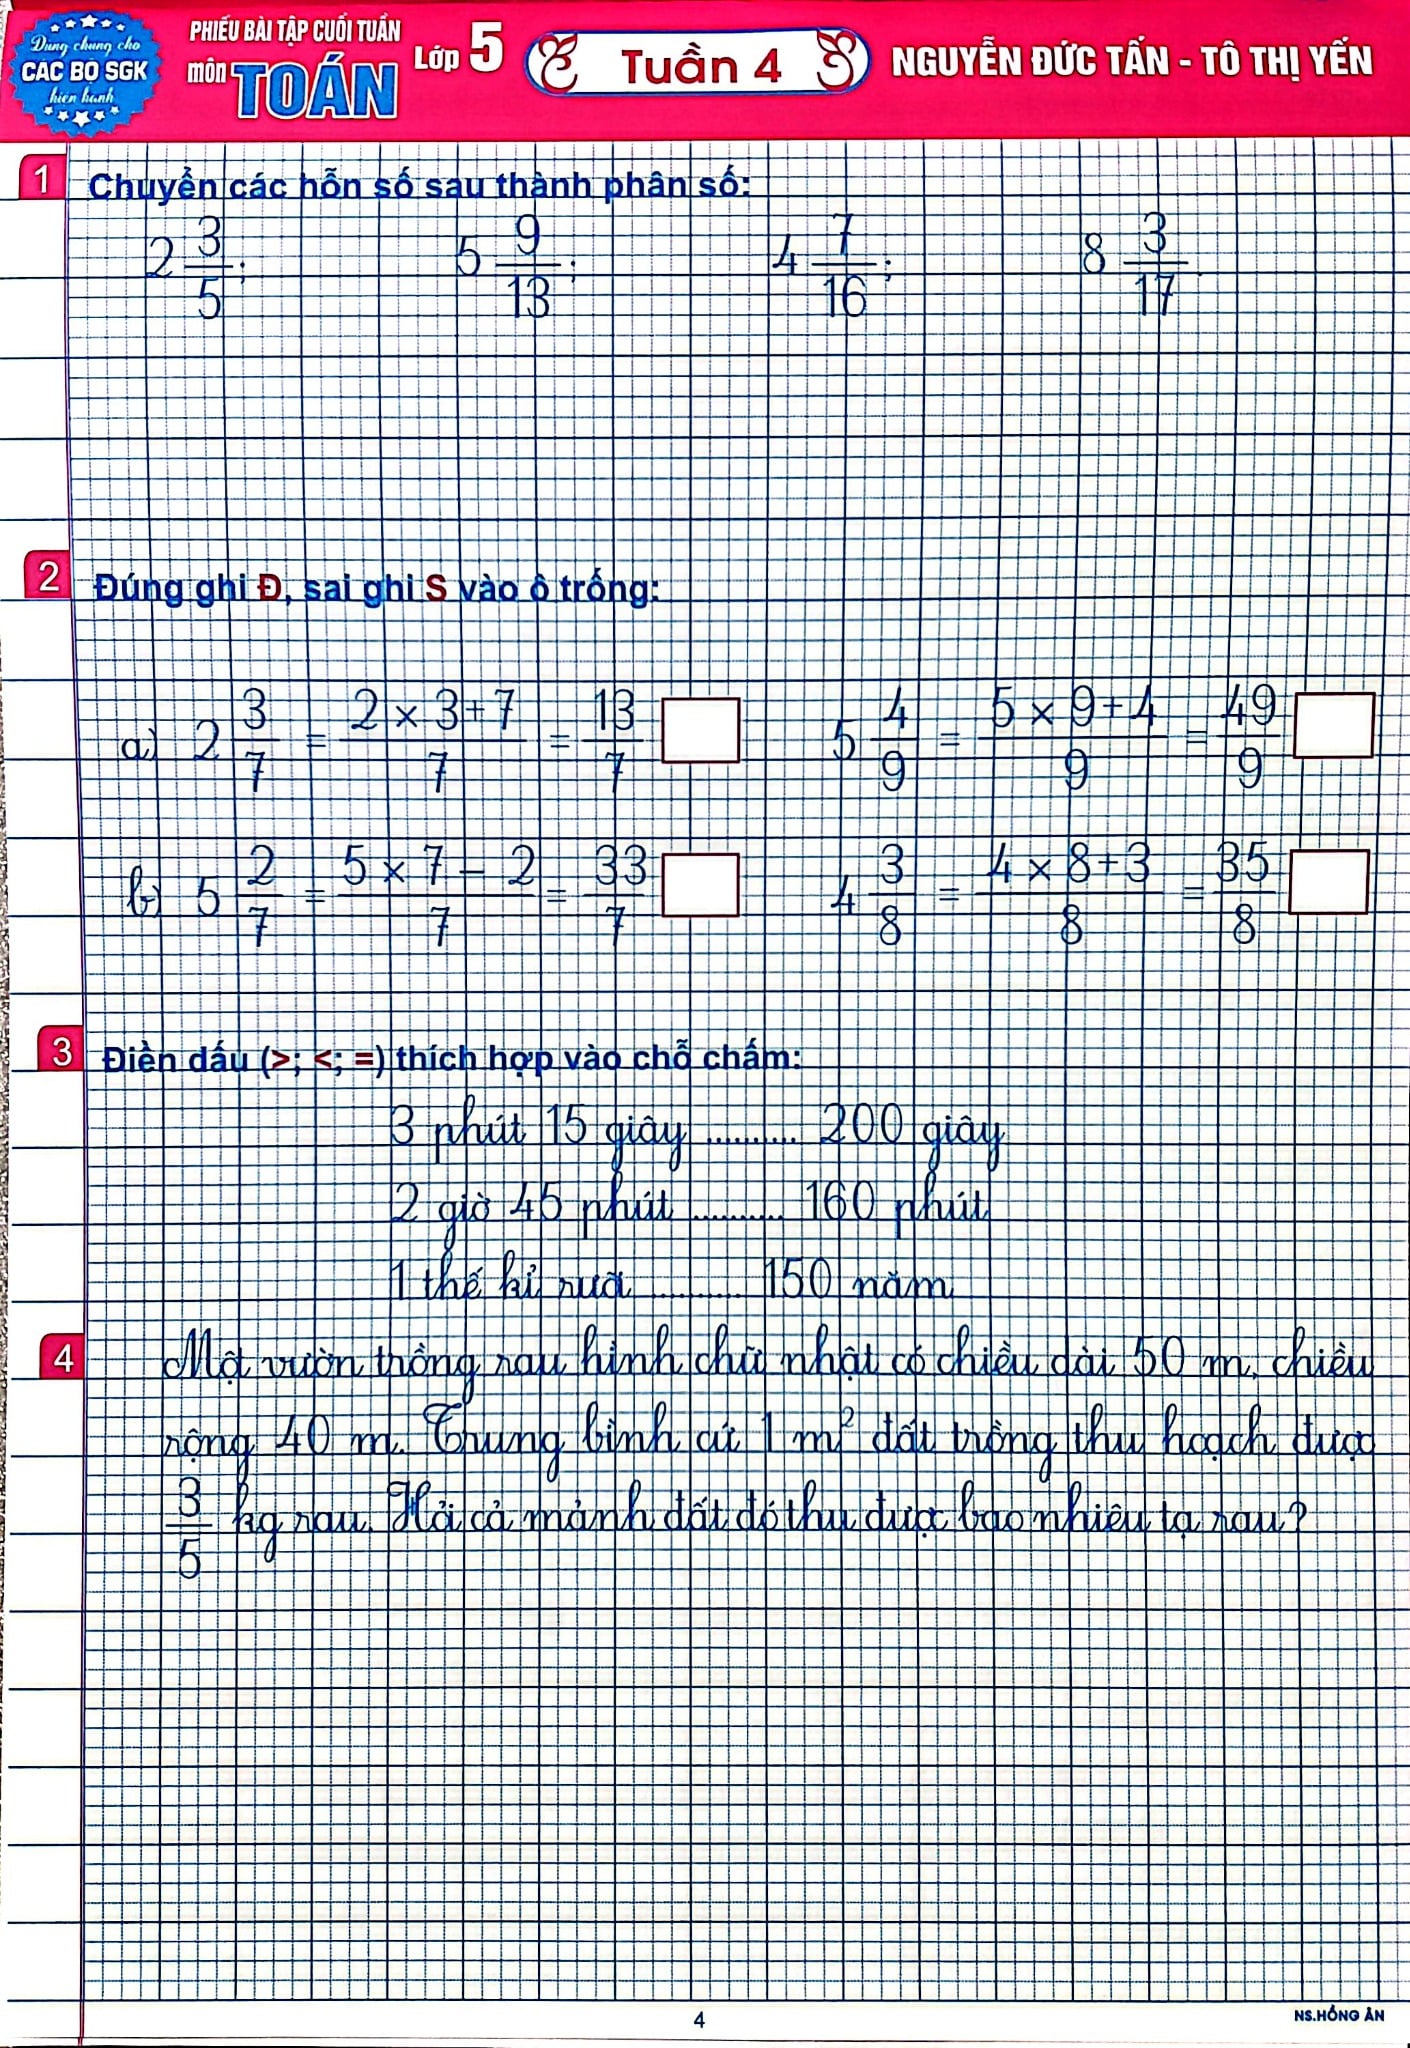 Dùng chung cho
CÁC BỘ SGK
hiện hành
PHIẾU BÀI TẬP CUỐI TUẦN
môn TOÁN Lớp 5
Tuần 4
NGUYỄN ĐỨC TẤN - TÔ THỊ YẾN
1 Chuyển các hỗn số sau thành phân số:
2 3/5; 5 9/13; 4 7/16; 8 3/17.
2 Đúng ghi Đ, sai ghi S vào ô trống:
a) 2 3/7 = (2 × 3 + 7)/7 = 13/7 5 4/9 = (5 × 9 + 4)/9 = 49/9
b) 5 2/7 = (5 × 7 – 2)/7 = 33/7 4 3/8 = (4 × 8 + 3)/8 = 35/8
3 Điền dấu (>; <; =) thích hợp vào chỗ chấm:
3 phút 15 giây .......... 200 giây
2 giờ 45 phút .......... 160 phút
1 thế kỉ rưỡi .......... 150 năm
4 Một vườn trồng rau hình chữ nhật có chiều dài 50 m, chiều
rộng 40 m. Trung bình cứ 1 m² đất trồng thu hoạch được
3/5 kg rau. Hỏi cả mảnh đất đó thu được bao nhiêu tạ rau?
4
NS.HỒNG ÂN